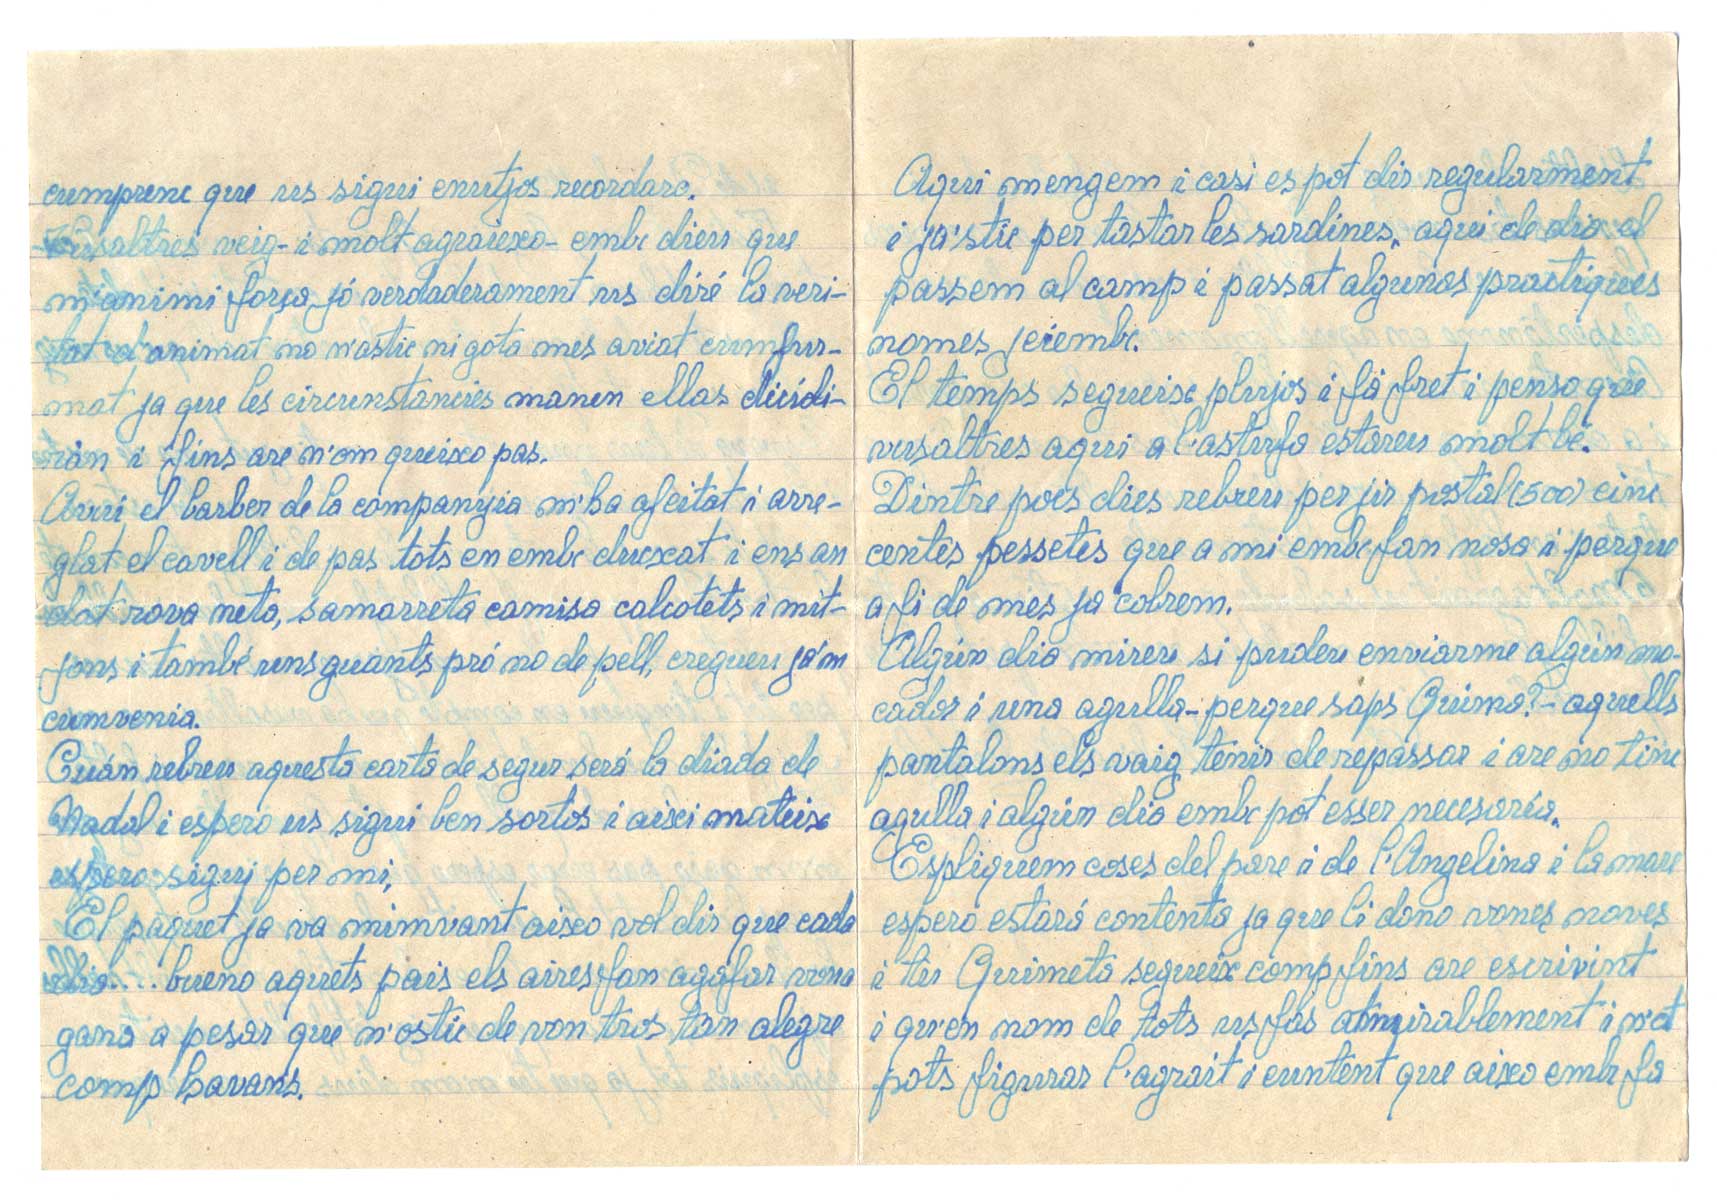 cumprenc que us sigui enutjos recordaro.
Vusaltres veig- i molt agraiexo- embc dieu que
m'animi força jó verdaderament us diré la veri-
tat d'animat no n'astic ni gota mes aviat cumfur-
mat ja que les circunstancies manen ellas dicidi-
rán i fins are n'om queixo pas.
Avui el barber de la companyia m'ha afeitat i arre-
glat el cavell i de pas tots en embc duexat i ens an
dat rova neta, samarreta camisa calcotets i mit-
jons i també uns guants pró no de pell, cregueu ja'm
cumvenia.
Cuan rebreu aquesta carta de segur será la diada de
Nadal i espero us sigui ben sortos i aixi mateixc
espero sigui per mi,
El paquet ja va minvant aixo vol dir que cada
dia.... bueno aquets pais els aires fan agafar vona
gana a pesar que n'ostic de von tros tan alegre
comp havans.
Aqui mengem i casi es pot dir regularment
i ja'stic per tastar les sardines, aqui de dia el
passem al camp i passat algunas practiques
nomes jeiembc.
El temps segueixc plujos i fá fret i penso que
vusaltres aqui a l'astufa estareu molt bé.
Dintre pocs dies rebreu per jir postal (500) cinc
centes pessetes que a mi embc fan nosa i perque
a fi de mes ja cobrem.
Algun dia mireu si pudeu enviarme algún mo-
cador i una agulla-perque saps Quima?- aquells
pantalons els vaig tenir de repassar i are no tinc
agulla i algún dia embc pot esser necesaria.
Espliquem coses del pare i de l'Angelina i la mare
espero estará contenta ja que li dono vones noves
i tu Quimeta segueix comp fins are escrivint
i qu'en nom de tots us fás admirablement i n'ot
pots figurar l'agrait i cuntent que aixo embc fa